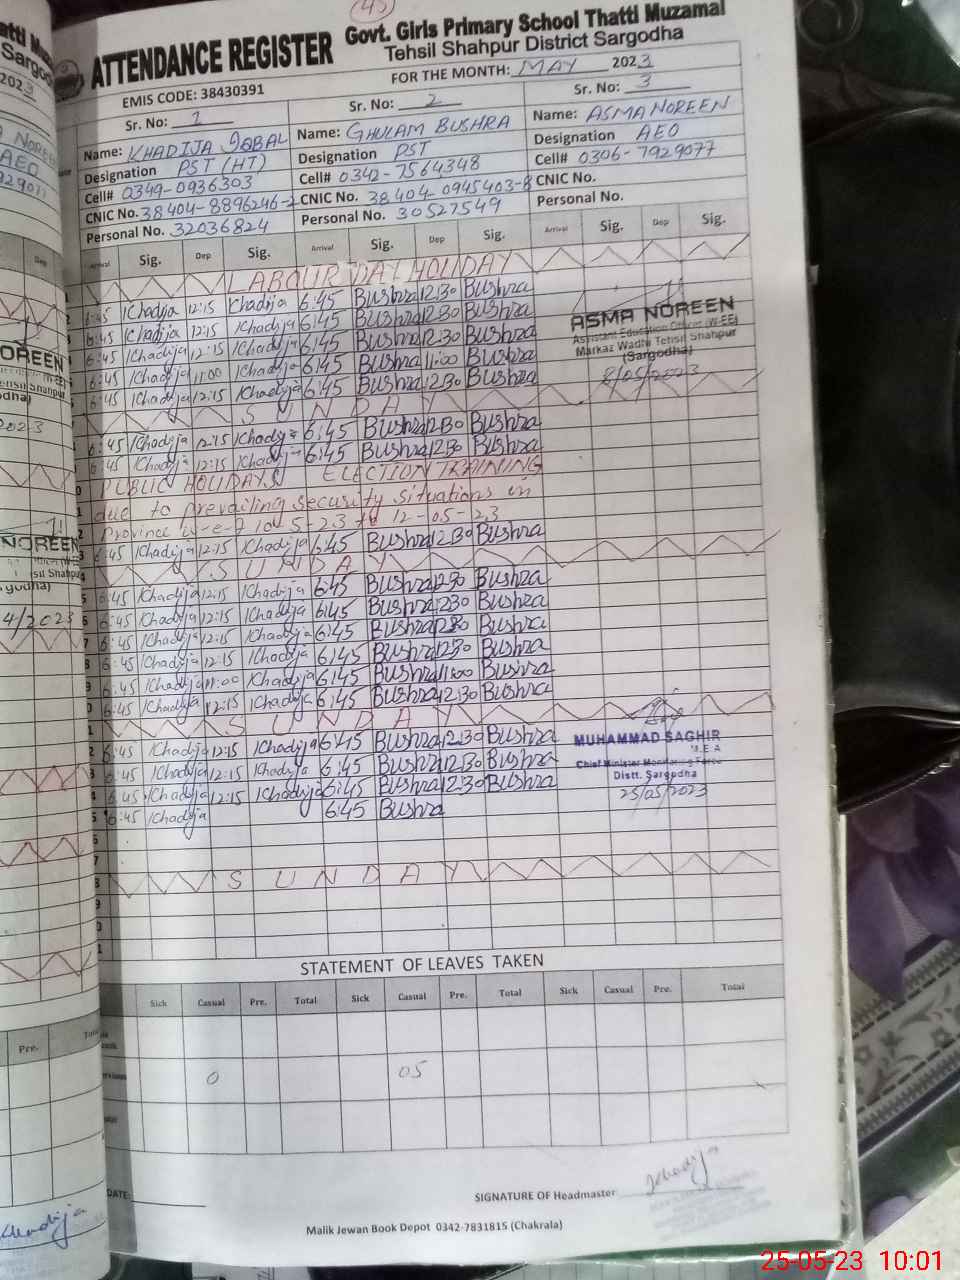 45
Govt. Girls Primary School Thatti Muzamal
ATTENDANCE REGISTER
Tehsil Shahpur District Sargodha
EMIS CODE: 38430391
FOR THE MONTH: MAY 2023
Sr. No: 1 Sr. No: 2 Sr. No: 3
Name: KHADIJA IQBAL Name: GHULAM BUSHRA Name: ASMA NOREEN
Designation PST (HT) Designation PST Designation AEO
Cell# 0349-0936303 Cell# 0342-7564348 Cell# 0306-7929077
CNIC No. 38404-8896246-2 CNIC No. 38404-0945403-8 CNIC No.
Personal No. 32036824 Personal No. 30527549 Personal No.
Arrival Sig. Dep Sig. Arrival Sig. Dep Sig. Arrival Sig. Dep Sig.
LABOUR DAY HOLIDAY
6:45 Khadija 12:15 Khadija 6:45 Bushra 12:30 Bushra
6:45 Khadija 12:15 Khadija 6:45 Bushra 12:30 Bushra
6:45 Khadija 12:15 Khadija 6:45 Bushra 12:30 Bushra
6:45 Khadija 11:00 Khadija 6:45 Bushra 11:00 Bushra
6:45 Khadija 12:15 Khadija 6:45 Bushra 12:30 Bushra
ASMA NOREEN
Assistant Education Officer (W-EE)
Markaz Wadhi Tehsil Shahpur
(Sargodha)
8/05/2023
SUNDAY
6:45 Khadija 12:15 Khadija 6:45 Bushra 12:30 Bushra
6:45 Khadija 12:15 Khadija 6:45 Bushra 12:30 Bushra
PUBLIC HOLIDAYS ELECTION TRAINING
due to prevailing security situations in
Province w-e-f 10-5-23 to 12-05-23
6:45 Khadija 12:15 Khadija 6:45 Bushra 12:30 Bushra
SUNDAY
6:45 Khadija 12:15 Khadija 6:45 Bushra 12:30 Bushra
6:45 Khadija 12:15 Khadija 6:45 Bushra 12:30 Bushra
6:45 Khadija 12:15 Khadija 6:45 Bushra 12:30 Bushra
6:45 Khadija 12:15 Khadija 6:45 Bushra 12:30 Bushra
6:45 Khadija 11:00 Khadija 6:45 Bushra 11:00 Bushra
6:45 Khadija 12:15 Khadija 6:45 Bushra 12:30 Bushra
SUNDAY
6:45 Khadija 12:15 Khadija 6:45 Bushra 12:30 Bushra
6:45 Khadija 12:15 Khadija 6:45 Bushra 12:30 Bushra
6:45 Khadija 12:15 Khadija 6:45 Bushra 12:30 Bushra
6:45 Khadija 6:45 Bushra
MUHAMMAD SAGHIR
M.E.A
Chief Minister Monitoring Force
Distt. Sargodha
25/05/2023
SUNDAY
STATEMENT OF LEAVES TAKEN
Sick Casual Pre. Total Sick Casual Pre. Total Sick Casual Pre. Total
0 05
DATE:
SIGNATURE OF Headmaster Khadija
Malik Jewan Book Depot 0342-7831815 (Chakrala)
25-05-23 10:01